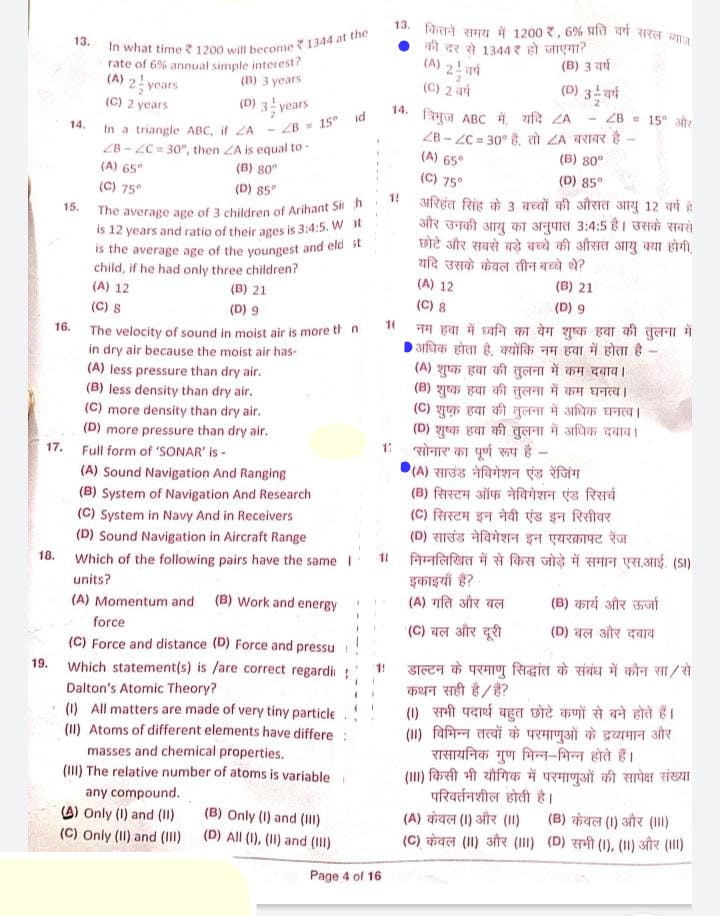 13. In what time ₹ 1200 will become ₹ 1344 at the
rate of 6% annual simple interest?
(A) 2 1/2 years (B) 3 years
(C) 2 years (D) 3 1/2 years
14. In a triangle ABC, if ∠A - ∠B = 15° id
∠B - ∠C = 30°, then ∠A is equal to -
(A) 65° (B) 80°
(C) 75° (D) 85°
15. The average age of 3 children of Arihant Si h
is 12 years and ratio of their ages is 3:4:5. W at
is the average age of the youngest and eld st
child, if he had only three children?
(A) 12 (B) 21
(C) 8 (D) 9
16. The velocity of sound in moist air is more th n
in dry air because the moist air has-
(A) less pressure than dry air.
(B) less density than dry air.
(C) more density than dry air.
(D) more pressure than dry air.
17. Full form of 'SONAR' is -
(A) Sound Navigation And Ranging
(B) System of Navigation And Research
(C) System in Navy And in Receivers
(D) Sound Navigation in Aircraft Range
18. Which of the following pairs have the same
units?
(A) Momentum and (B) Work and energy
force
(C) Force and distance (D) Force and pressu
19. Which statement(s) is /are correct regardi
Dalton's Atomic Theory?
(I) All matters are made of very tiny particle
(II) Atoms of different elements have differe
masses and chemical properties.
(III) The relative number of atoms is variable
any compound.
(A) Only (I) and (II) (B) Only (I) and (III)
(C) Only (II) and (III) (D) All (I), (II) and (III)
13. कितने समय में 1200 ₹, 6% प्रति वर्ष सरल ब्याज
की दर से 1344₹ हो जाएगा?
(A) 2 1/2 वर्ष (B) 3 वर्ष
(C) 2 वर्ष (D) 3 1/2 वर्ष
14. त्रिभुज ABC में, यदि ∠A - ∠B = 15° और
∠B - ∠C = 30° है, तो ∠A बराबर है –
(A) 65° (B) 80°
(C) 75° (D) 85°
अरिहंत सिंह के 3 बच्चों की औसत आयु 12 वर्ष है
और उनकी आयु का अनुपात 3:4:5 है। उसके सबसे
छोटे और सबसे बड़े बच्चे की औसत आयु क्या होगी,
यदि उसके केवल तीन बच्चे थे?
(A) 12 (B) 21
(C) 8 (D) 9
नम हवा में ध्वनि का वेग शुष्क हवा की तुलना में
अधिक होता है, क्योंकि नम हवा में होता है –
(A) शुष्क हवा की तुलना में कम दबाव।
(B) शुष्क हवा की तुलना में कम घनत्व।
(C) शुष्क हवा की तुलना में अधिक घनत्व।
(D) शुष्क हवा की तुलना में अधिक दबाव।
'सोनार' का पूर्ण रूप है –
(A) साउंड नेविगेशन एंड रेंजिंग
(B) सिस्टम ऑफ नेविगेशन एंड रिसर्च
(C) सिस्टम इन नेवी एंड इन रिसीवर
(D) साउंड नेविगेशन इन एयरक्राफ्ट रेंज
निम्नलिखित में से किस जोड़े में समान एस.आई. (SI)
इकाइयाँ हैं?
(A) गति और बल (B) कार्य और ऊर्जा
(C) बल और दूरी (D) बल और दवाव
डाल्टन के परमाणु सिद्धांत के संबंध में कौन सा/से
कथन सही है/हैं?
(I) सभी पदार्थ बहुत छोटे कणों से बने होते हैं।
(II) विभिन्न तत्वों के परमाणुओं के द्रव्यमान और
रासायनिक गुण भिन्न–भिन्न होते हैं।
(III) किसी भी यौगिक में परमाणुओं की सापेक्ष संख्या
परिवर्तनशील होती है।
(A) केवल (I) और (II) (B) केवल (I) और (III)
(C) केवल (II) और (III) (D) सभी (I), (II) और (III)
Page 4 of 16